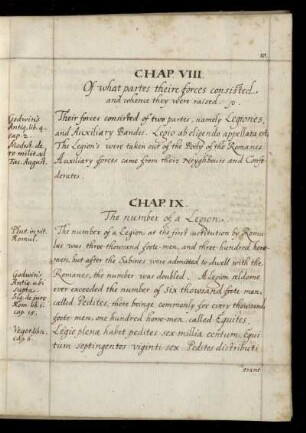 CHAP. VIII.
Of what partes theire forces consisted
and whence they were raised.
Godwin's
Antiq. lib. 4.
cap. 2.
Their forces consisted of two partes, namely Legiones,
and Auxiliary Bandes. Legio ab eligendo appellata est.
The Legion's were taken out of the Body of the Romanes
Auxiliary forces came from their Neyghbours and Confe
derates.
CHAP IX.
The number of a Legion.
Plut. in vit.
Romul.
The number of a Legion at the first institution by Romu
lus was three thousand foote-men, and three hundred horse-
men, but after the Sabines were admitted to dwell with the
Romanes, the number was doubled. A Legion seldome
ever exceeded the number of Six thousand foote-men,
called Pedites, there beinge commonly for every thousand
foote-men, one hundred horse-men, called Equites.
Legio plena habet pedites sex millia centum, Equi
tum septingentos viginti sex. Pedites distributi
Godwin's
Antiq. ubi
supra
cap. 15.
Veget. lib.
cap. 6
erant